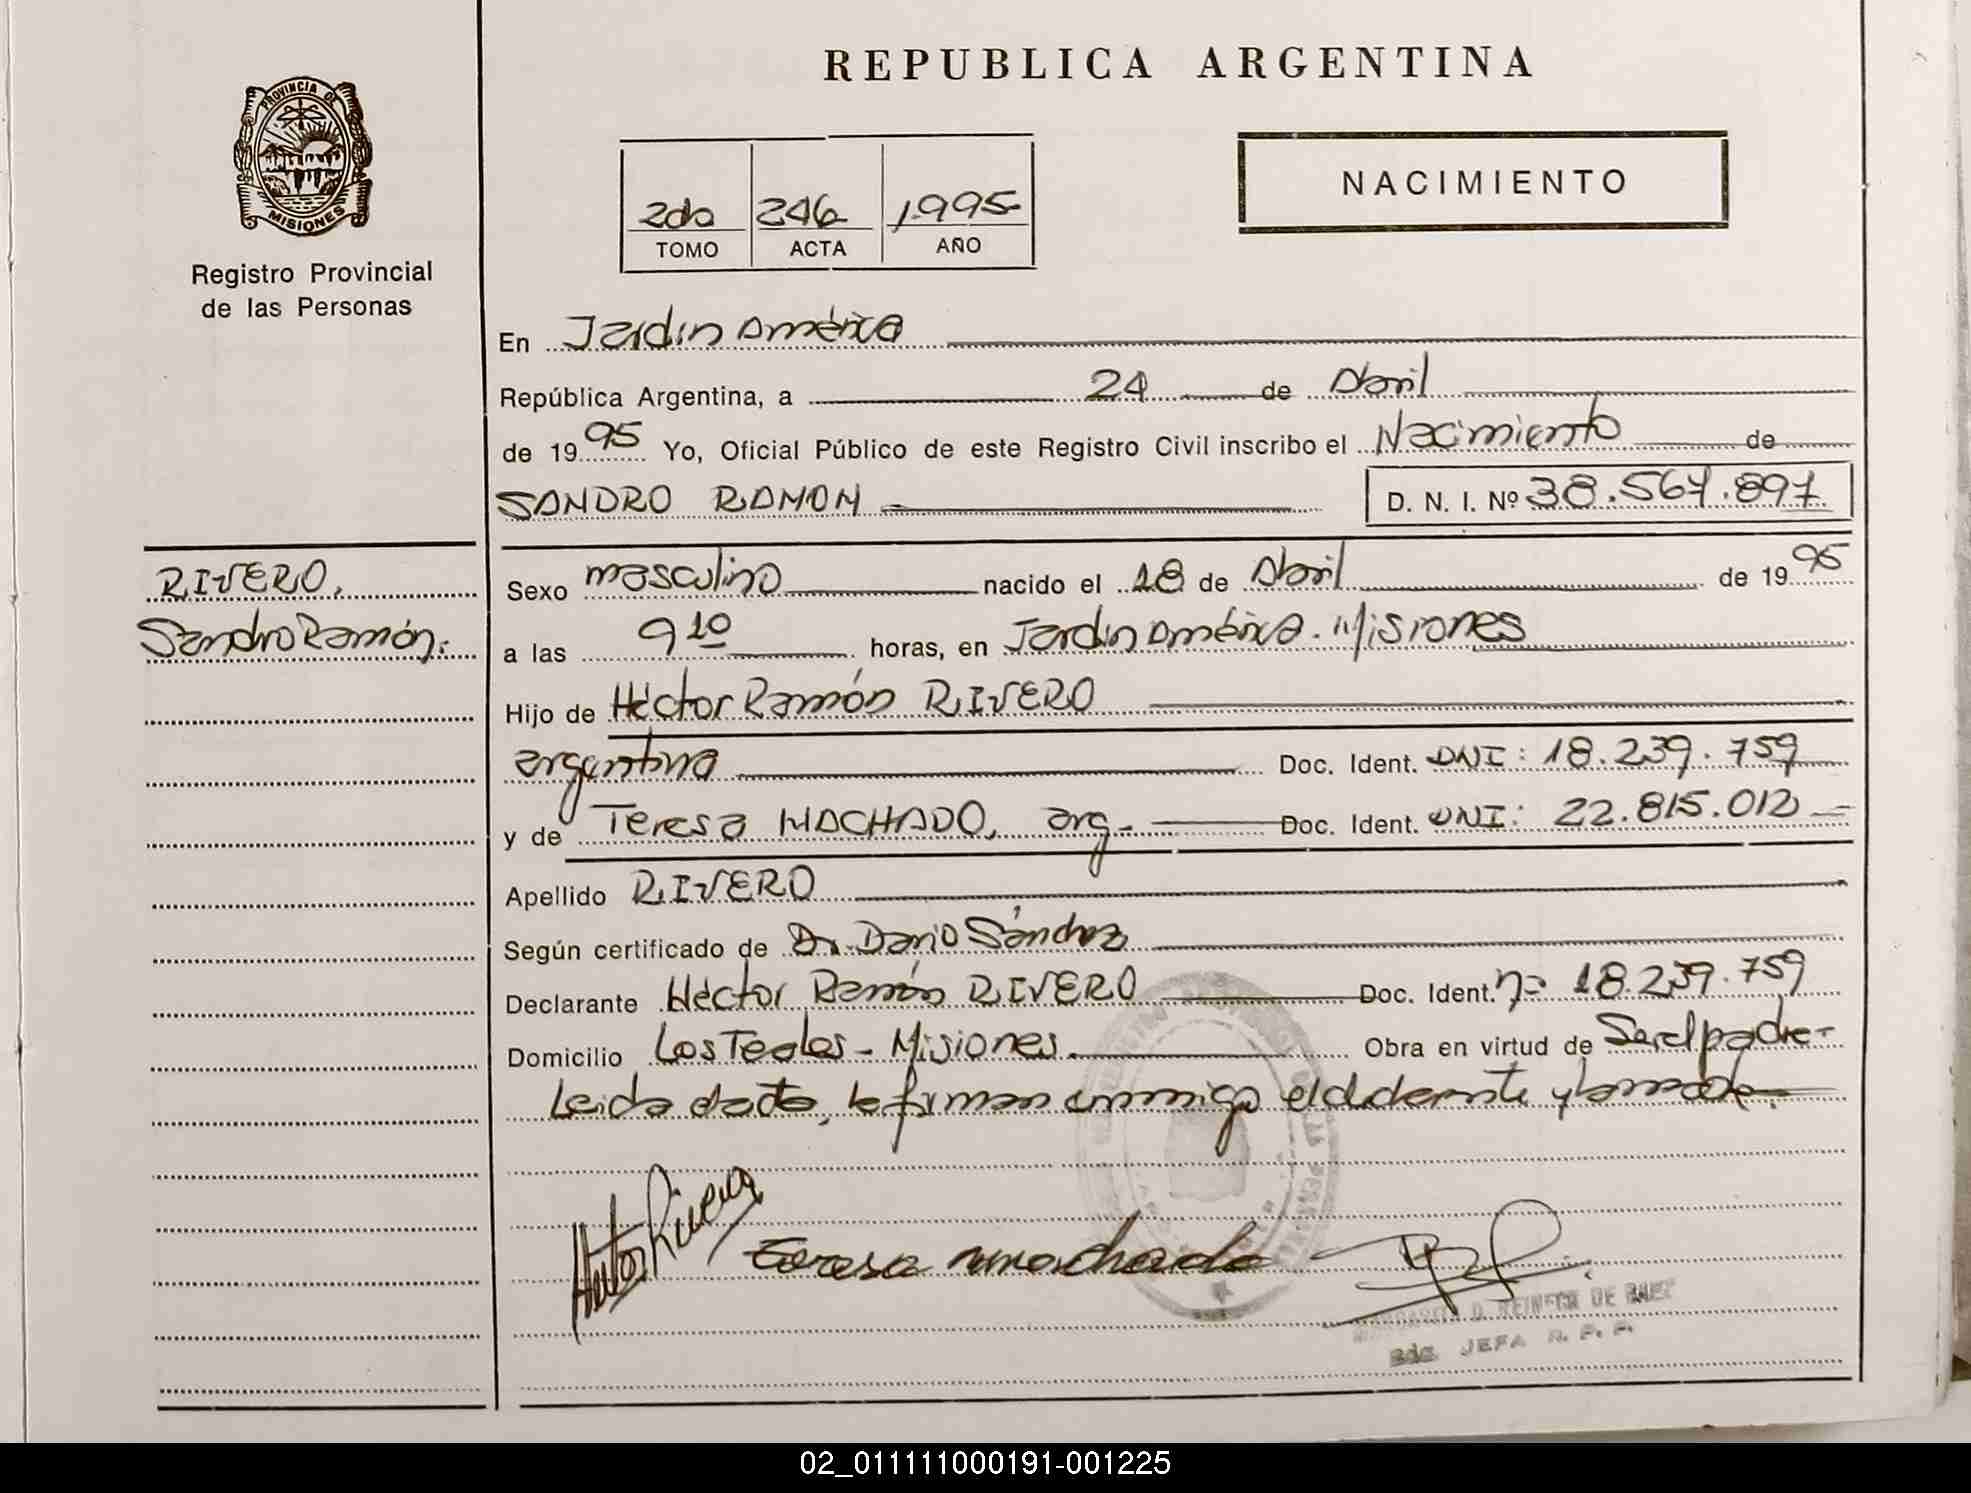 REPUBLICA ARGENTINA
PROVINCIA DE
MISIONES
Registro Provincial
de las Personas
2do 246 1.995-
TOMO ACTA AÑO
NACIMIENTO
En Jardin América
República Argentina, a 24 de Abril
de 1995 Yo, Oficial Público de este Registro Civil inscribo el Nacimiento de
SANDRO RAMON D. N. I. Nº 38.567.897
RIVERO,
Sandro Ramón.
Sexo masculino nacido el 18 de Abril de 1995
a las 9 10 horas, en Jardin América. Misiones
Hijo de Héctor Ramón RIVERO
argentina Doc. Ident. DNI: 18.239.759
y de Teresa MACHADO, arg. Doc. Ident. DNI: 22.815.012
Apellido RIVERO
Según certificado de Dr. Dario Sánchez
Declarante Héctor Ramón RIVERO Doc. Ident. 18.239.759
Domicilio Los Teales - Misiones. Obra en virtud de Ser el padre-
Leida el acta, la firman conmigo el declarante y la madre.
Hector Rivero
Teresa machado
D. REINECK DE BAEZ
JEFA R. P. P.
02_011111000191-001225